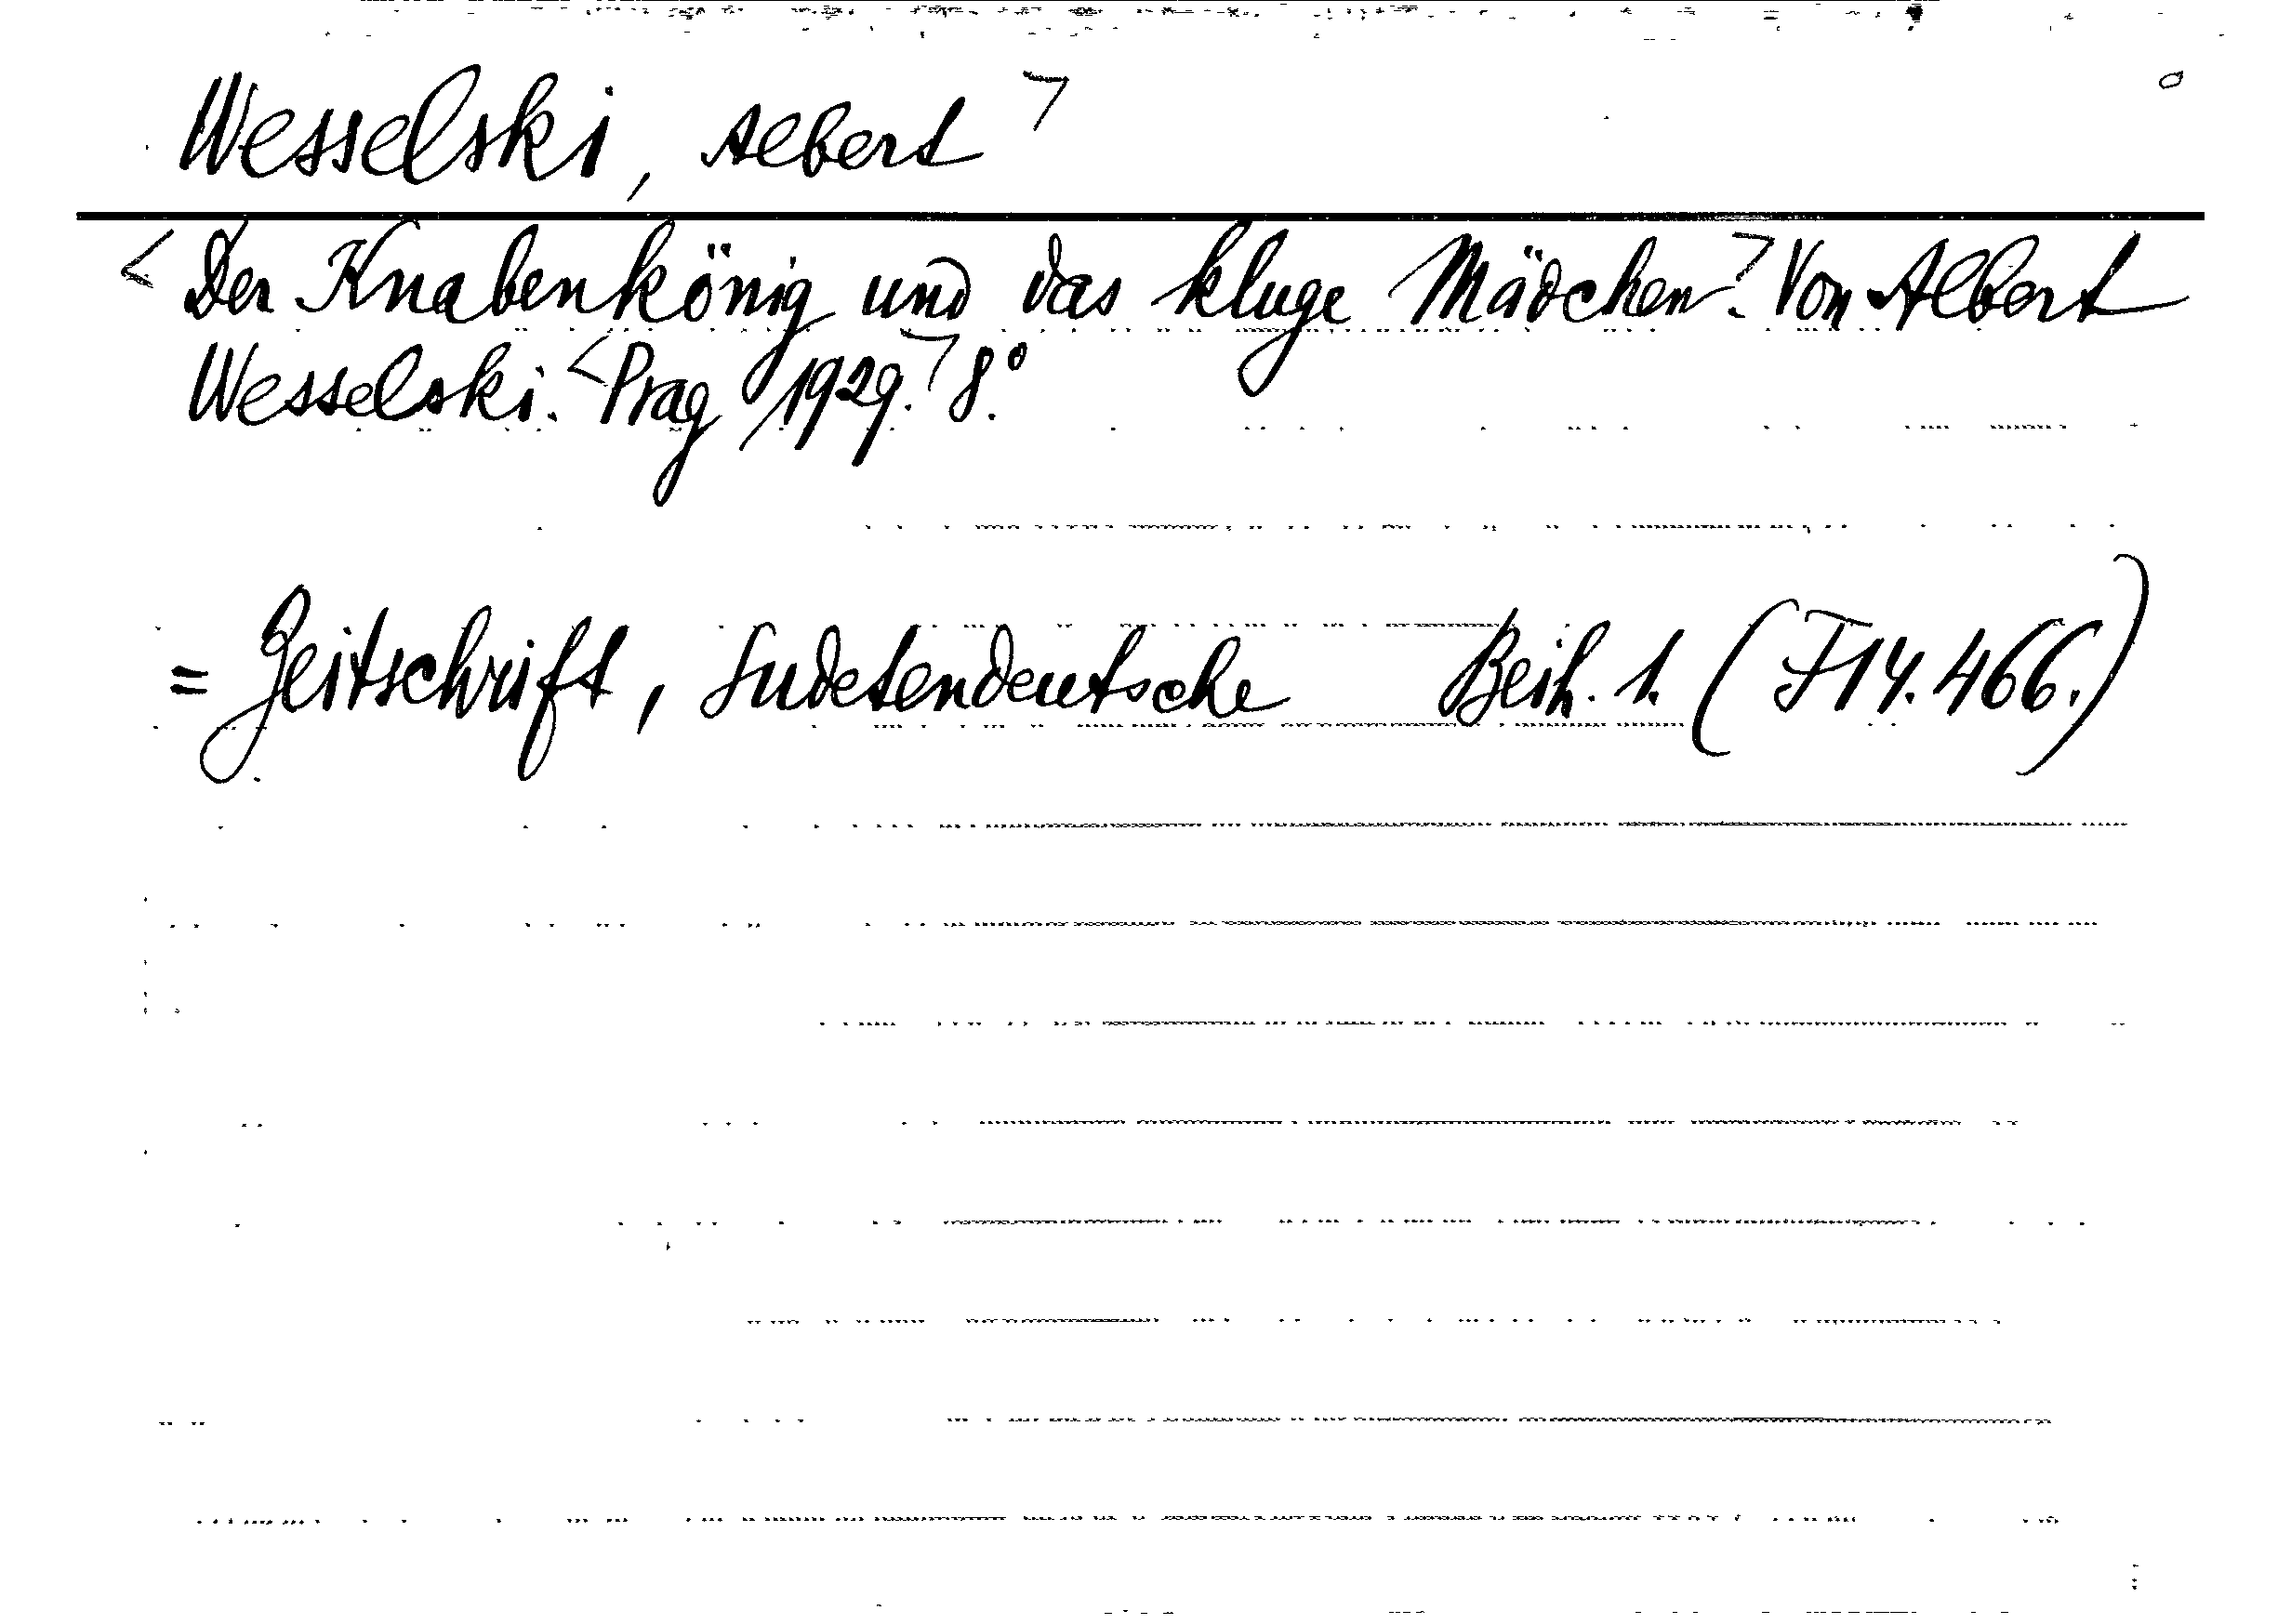 Wesselski, Albert
Der Knabenkönig und das kluge Mädchen. Von Albert
Wesselski. Prag 1929. 8.°
= Zeitschrift, Sudetendeutsche Beih. 1. (F14.466.)